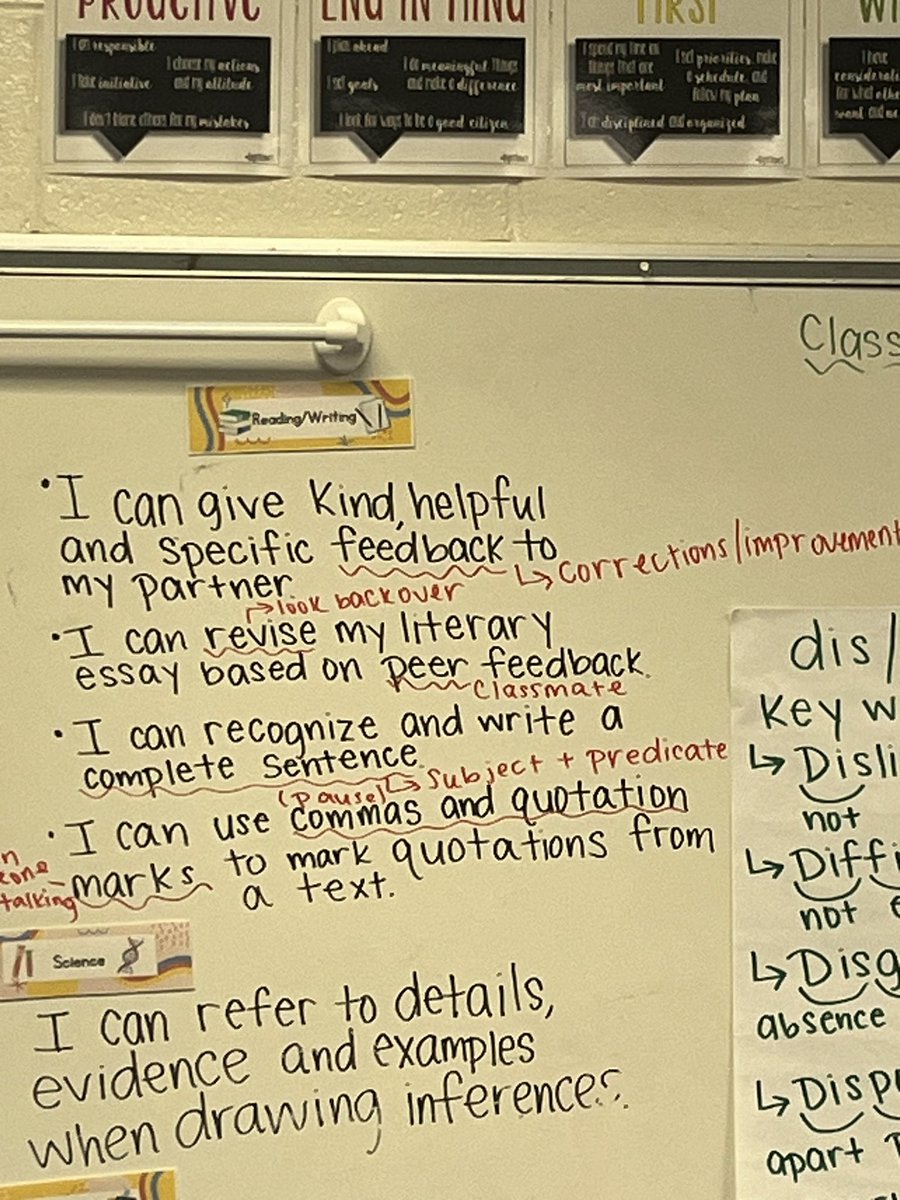 PRODUCTIVE
I am responsible
I choose my actions
I take initiative and my attitude
I don't blame others for my mistakes
END IN MIND
I plan ahead
I do meaningful things
I set goals and make a difference
I look for ways to be a good citizen
FIRST
I spend my time on
things that are
most important
I set priorities, make
a schedule, and
follow my plan
I am disciplined and organized
WI
I have
want and ne
Class
Reading/Writing
• I can give kind, helpful
and specific feedback to
↳ corrections/improvement
my partner
↱ look back over
• I can revise my literary
essay based on peer feedback.
classmate
• I can recognize and write a
complete sentence.
↳ subject + predicate
(pause)
• I can use commas and quotation
marks to mark quotations from
talking
a text.
Science
I can refer to details,
evidence and examples
when drawing inferences.
dis/
Key w
↳ Disli
not
↳ Diffi
not e
↳ Disg
absence
↳ Disp
apart